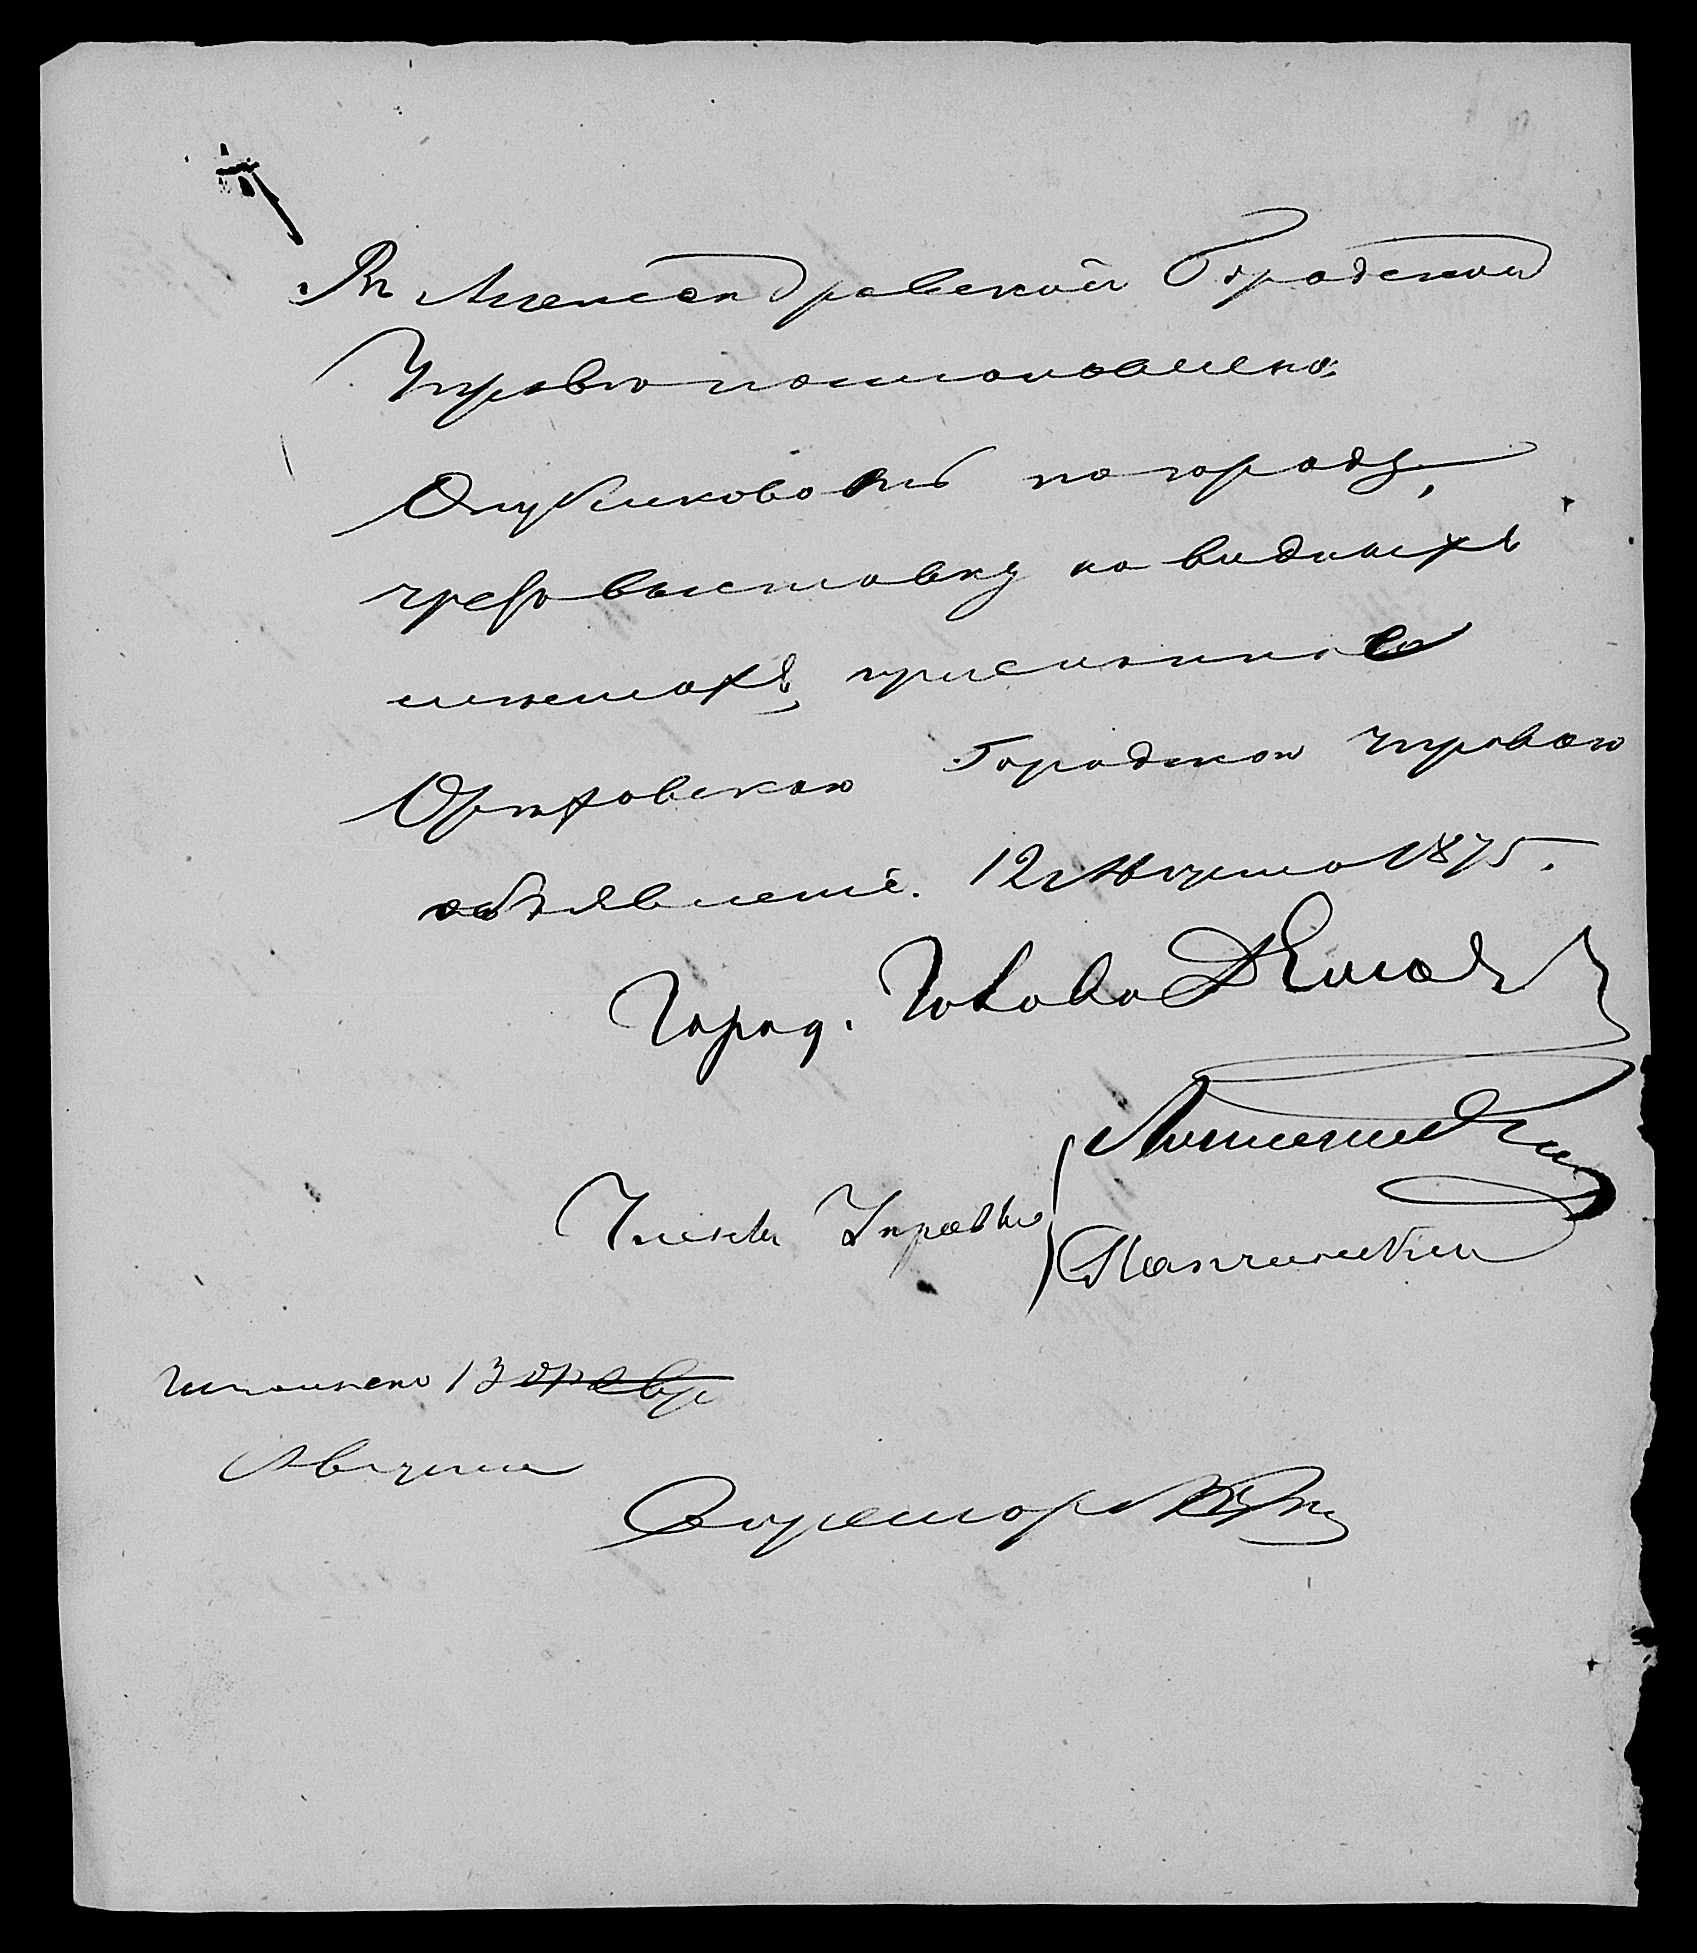 Въ Александровской Городской
Управѣ постановлено:
Опубликовать по городу,
чрезъ выставку на видныхъ
мѣстахъ, присланное
Орѣховскою Городскою Управою
объявленіе. 12 Августа 1875.
Город. Голова
Члены Управы
Исполнено 13
Августа
Секретарь